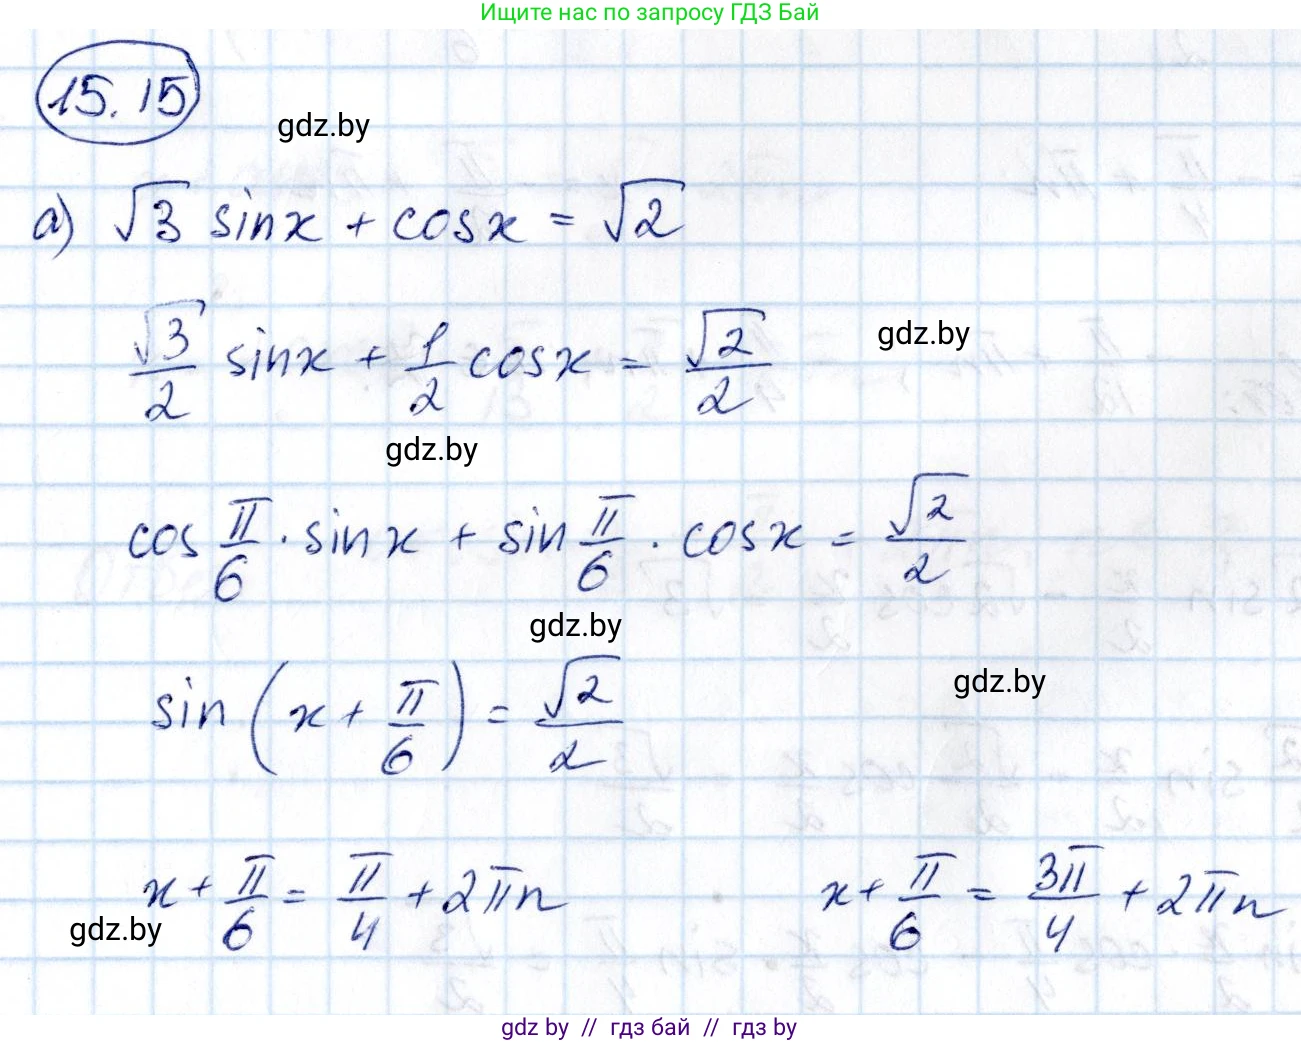 Ищите нас по запросу ГДЗ Бай
15.15
gdz.by
а) √3 sinx + cosx = √2
√3/2 sinx + 1/2 cosx = √2/2
gdz.by
gdz.by
cos π/6 · sinx + sin π/6 · cosx = √2/2
gdz.by
sin (x + π/6) = √2/2
gdz.by
x + π/6 = π/4 + 2πn x + π/6 = 3π/4 + 2πn
gdz.by
gdz by // гдз бай // гдз by